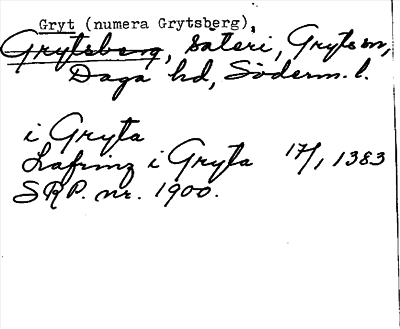 Gryt (numera Grytsberg),
Grytsberg, säteri, Gryts sn,
Daga hd, Söderm. l.
i Gryta
Lafrinz i Gryta 17/1 1383
SRP. nr. 1900.